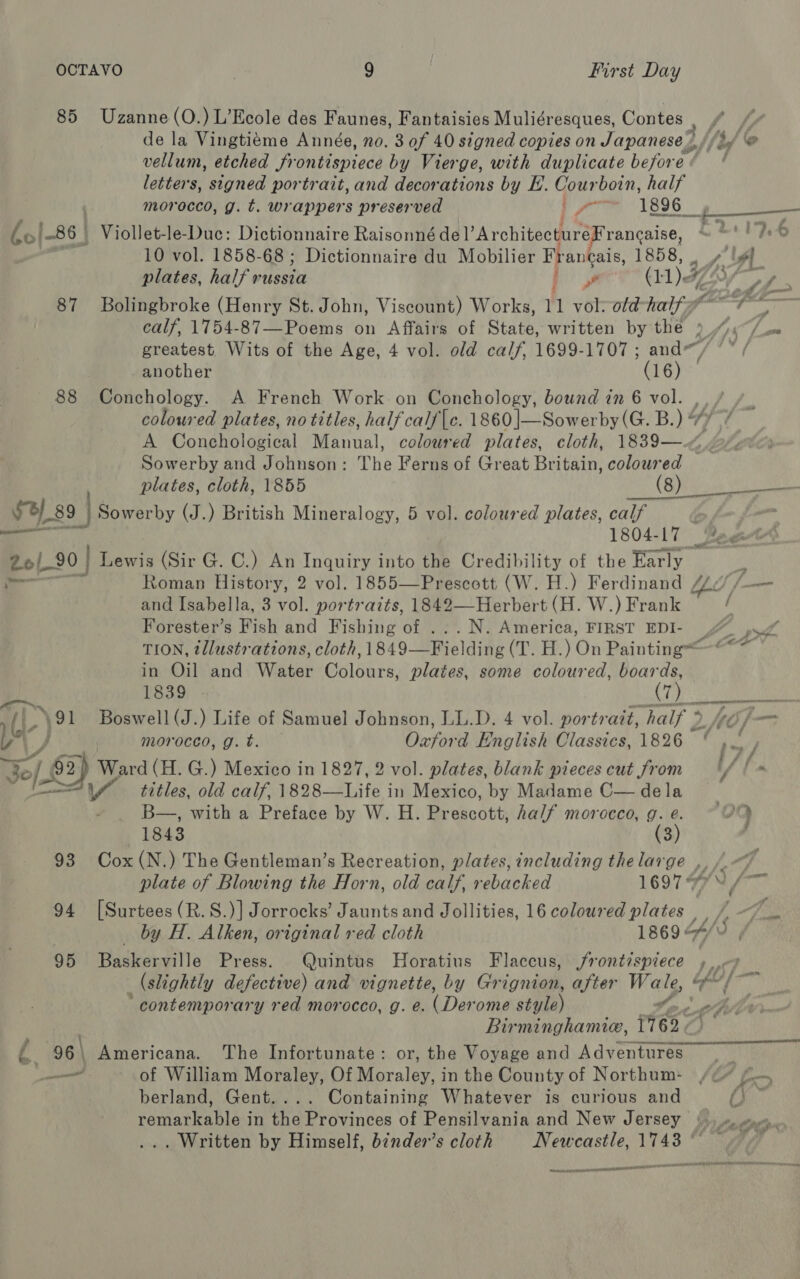 OCTAVO 9 First Day
85 Uzanne (O.) L’Ecole des Faunes, Fantaisies Muliéresques, Contes
de la Vingtième Année, no. 3 of 40 signed copies on Japanese
vellum, etched frontispiece by Vierge, with duplicate before
letters, signed portrait, and decorations by E. Courboin, half
morocco, g. t. wrappers preserved 1896
86 Viollet-le-Duc: Dictionnaire Raisonné de l’Architecture Française,
10 vol. 1858-68; Dictionnaire du Mobilier Français, 1858,
plates, half russia (11)
87 Bolingbroke (Henry St. John, Viscount) Works, 11 vol. old half
calf, 1754-87—Poems on Affairs of State, written by the
greatest Wits of the Age, 4 vol. old calf, 1699-1707; and
another (16)
88 Conchology. A French Work on Conchology, bound in 6 vol.
coloured plates, no titles, half calf [c. 1860]—Sowerby (G. B.)
A Conchological Manual, coloured plates, cloth, 1839—
Sowerby and Johnson: The Ferns of Great Britain, coloured
plates, cloth, 1855 (8)
89 Sowerby (J.) British Mineralogy, 5 vol. coloured plates, calf
1804-17
90 Lewis (Sir G. C.) An Inquiry into the Credibility of the Early
Roman History, 2 vol. 1855—Prescott (W. H.) Ferdinand
and Isabella, 3 vol. portraits, 1842—Herbert (H. W.) Frank
Forester’s Fish and Fishing of ... N. America, FIRST EDI-
TION, illustrations, cloth, 1849—Fielding (T. H.) On Painting
in Oil and Water Colours, plates, some coloured, boards,
1839 (7)
91 Boswell (J.) Life of Samuel Johnson, LL.D. 4 vol. portrait, half
morocco, g. t. Oxford English Classics, 1826
92 Ward (H. G.) Mexico in 1827, 2 vol. plates, blank pieces cut from
titles, old calf, 1828—Life in Mexico, by Madame C— de la
B—, with a Preface by W. H. Prescott, half morocco, g. e.
1843 (3)
93 Cox (N.) The Gentleman’s Recreation, plates, including the large
plate of Blowing the Horn, old calf, rebacked 1697
94 [Surtees (R. S.)] Jorrocks’ Jaunts and Jollities, 16 coloured plates
by H. Alken, original red cloth 1869
95 Baskerville Press. Quintus Horatius Flaccus, frontispiece
(slightly defective) and vignette, by Grignion, after Wale,
contemporary red morocco, g. e. (Derome style)
Birminghamiæ, 1762
96 Americana. The Infortunate: or, the Voyage and Adventures
of William Moraley, Of Moraley, in the County of Northum-
berland, Gent.... Containing Whatever is curious and
remarkable in the Provinces of Pensilvania and New Jersey
... Written by Himself, binder’s cloth Newcastle, 1743